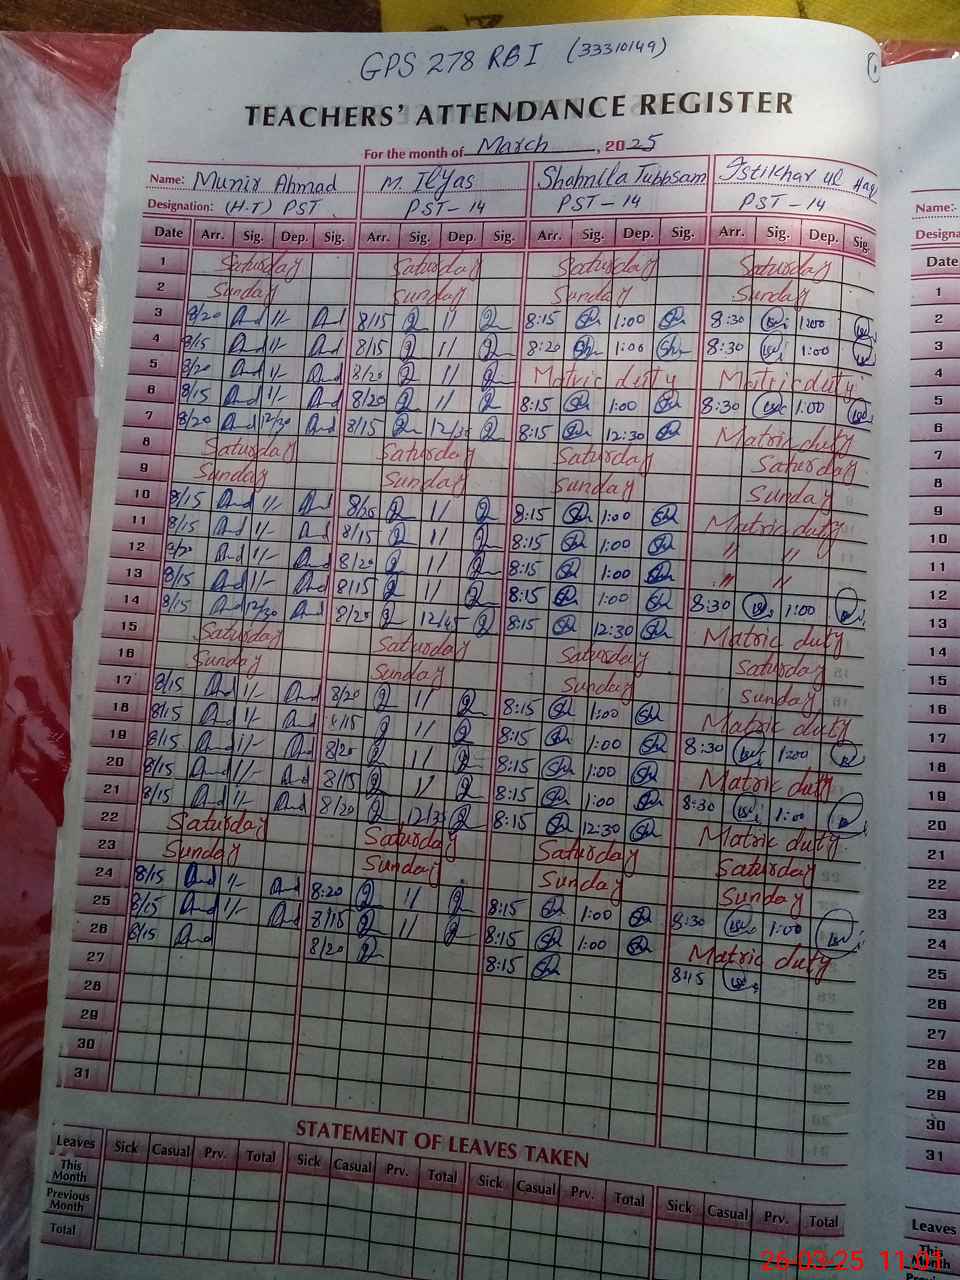 GPS 278 RBI (33310149)
TEACHERS' ATTENDANCE REGISTER
For the month of March, 2025
Name: Munir Ahmad M. Ilyas Shahnila Tubbsam Istikhar ul Haq
Designation: (H.T) PST PST-14 PST-14 PST-14
Date Arr. Sig. Dep. Sig. Arr. Sig. Dep. Sig. Arr. Sig. Dep. Sig. Arr. Sig. Dep. Sig.
1 Saturday Saturday Saturday Saturday
2 Sunday Sunday Sunday Sunday
3 8/20 1/- 8/15 1/ 8:15 1:00 8:30 1:00
4 8/15 1/- 8/15 1/ 8:20 1:00 8:30 1:00
5 8/20 1/- 8/20 1/ Matric duty Matric duty
6 8/15 1/- 8/20 1/ 8:15 1:00 8:30 1:00
7 8/20 12/30 8/15 12/30 8:15 12:30 Matric duty
8 Saturday Saturday Saturday Saturday
9 Sunday Sunday Sunday Sunday
10 8/15 1/- 8/20 1/ 8:15 1:00 Matric duty
11 8/15 1/- 8/15 1/ 8:15 1:00 " "
12 8/20 1/- 8/20 1/ 8:15 1:00 " "
13 8/15 1/- 8/15 1/ 8:15 1:00 8:30 1:00
14 8/15 12/30 8/20 12/45 8:15 12:30 Matric duty
15 Saturday Saturday Saturday Saturday
16 Sunday Sunday Sunday Sunday
17 8/15 1/- 8/20 1/ 8:15 1:00 Matric duty
18 8/15 1/- 8/15 1/ 8:15 1:00 8:30 1:00
19 8/15 1/- 8/20 1/ 8:15 1:00 Matric duty
20 8/15 1/- 8/15 1/ 8:15 1:00 8:30 1:00
21 8/15 1/- 8/20 12/30 8:15 12:30 Matric duty
22 Saturday Saturday Saturday Saturday
23 Sunday Sunday Sunday Sunday
24 8/15 1/- 8:20 1/ 8:15 1:00 8:30 1:00
25 8/15 1/- 8/15 1/ 8:15 1:00 Matric duty
26 8/15 8/20 8:15 8:45
27
28
29
30
31
STATEMENT OF LEAVES TAKEN
Leaves Sick Casual Prv. Total Sick Casual Prv. Total Sick Casual Prv. Total Sick Casual Prv. Total
This Month
Previous Month
Total
Name:-
Designa
Date
1
2
3
4
5
6
7
8
9
10
11
12
13
14
15
16
17
18
19
20
21
22
23
24
25
26
27
28
29
30
31
Leaves
This
Month
26-03-25 11:01